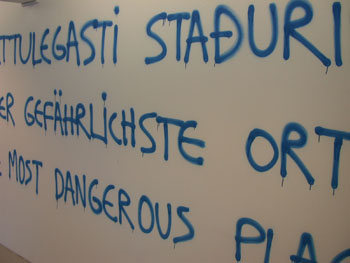 TTULEGASTI STAÐURI
ER GEFÄHRLICHSTE ORT
E MOST DANGEROUS PLAC